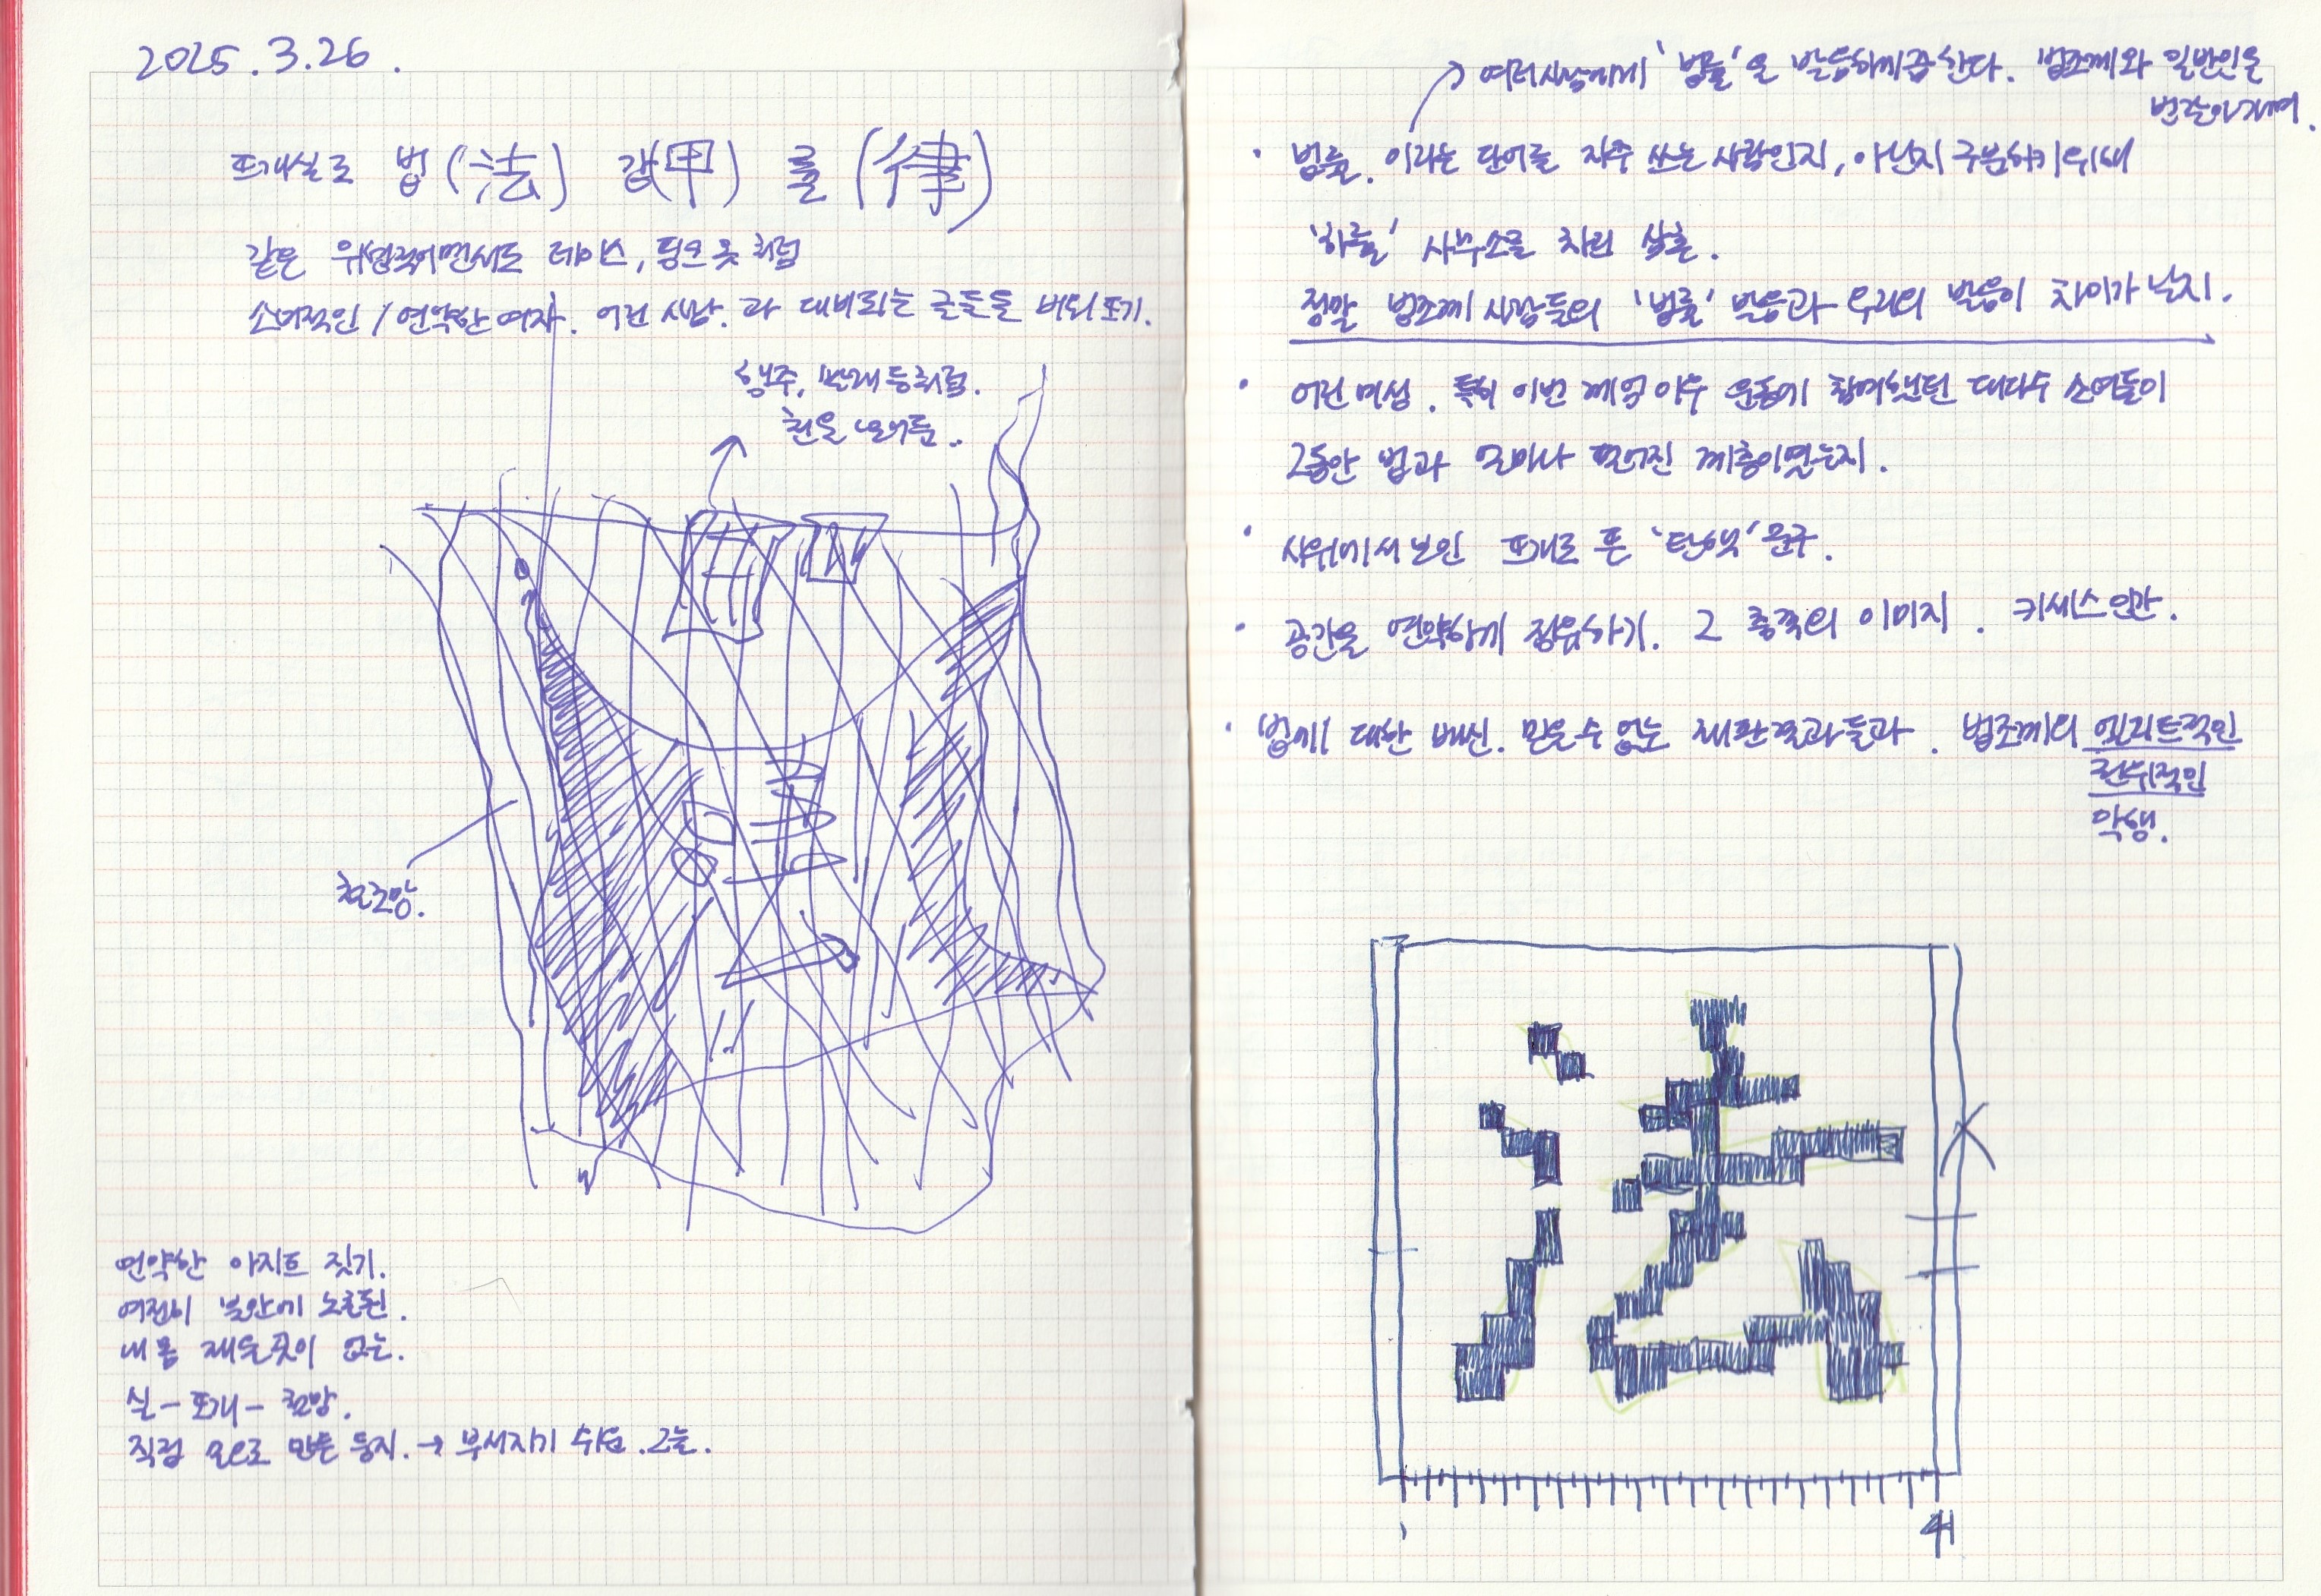 2025.3.26.
뜨개실로 법(法) 갑(甲) 률(律)
같은 위협적이면서도 레이스, 핑크 옷처럼
소녀적인 / 연약한 여자. 어린 사람. 과 대비되는 글들을 뜨기.
행주, 빨래 등처럼.
천을 널어둠.
철조망.
연약한 아지트 짓기.
여전히 불안에 노출된.
내 몸 재울 곳이 없는.
실 - 뜨개 - 철망.
직접 실로 만든 둥지. → 부서지기 쉬운. 그늘.
→ 여러 사람에게 '법률'을 발음하게끔 한다. 법조계와 일반인을
번갈아가며.
· 법률. 이라는 단어를 자주 쓰는 사람인지, 아닌지 구분하기 위해
'하률' 사무소를 차린 삼촌.
정말 법조계 사람들의 '법률' 발음과 우리의 발음이 차이가 날지.
· 어린 여성. 특히 이번 계엄 이후 운동에 참여했던 대다수 소녀들이
그동안 법과 얼마나 떨어진 계층이었는지.
· 시위에서 보인 뜨개로 뜬 '탄핵' 문구.
· 공간을 연약하게 점유하기. 그 충격의 이미지. 키세스 인간.
· 법에 대한 배신. 믿을 수 없는 재판 결과들과. 법조계의 엘리트적인
권위적인
악행.
法
41